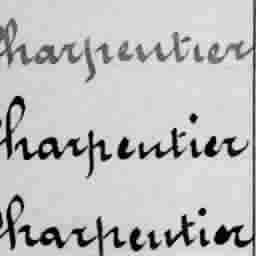 harpentier
harpentier
harpentier